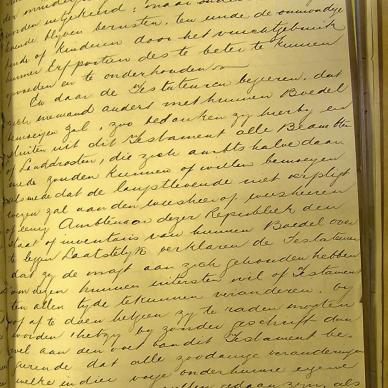 der minder
worden uitgekeerd; maar onder
hunde blijven berusten, ten einde de onmondige
kinde of kinderen door het vruchtgebruik
hunner Erfporten des te beter te kunnen
opvoeden en te onderhouden.
En daar de Testateuren begeren, dat
zich niemand anders met hunnen Boedel
bemoeijen zal, zoo bedanken zy hierby en
sluiten uit dit Testament alle Beambten
of Landdrosten, die zich ambts halve daar
mede zouden kunnen of willen bemoeijen
als mede dat de langstlevende niet verpligt
wezen zal aan den weesheer of weesheeren
of eenig Ambtenaar dezer Republiek den
staat of inventaris van hunnen Boedel over
te leggen Laatstelyk verklaren de Testateuren
dat zy de magt aan zich gehouden hebben
om dezen hunnen uitersten wil of Testament
ten allen tyde te kunnen veranderen, by
of af te doen hetgeen zy te raden mogten
worden hetzy by zonder geschrift dan
wel aan den voet van dit Testament be-
geerende dat alle zoodanige veranderingen
welke in dier voege onder hunne eigene
gedaan zyn als